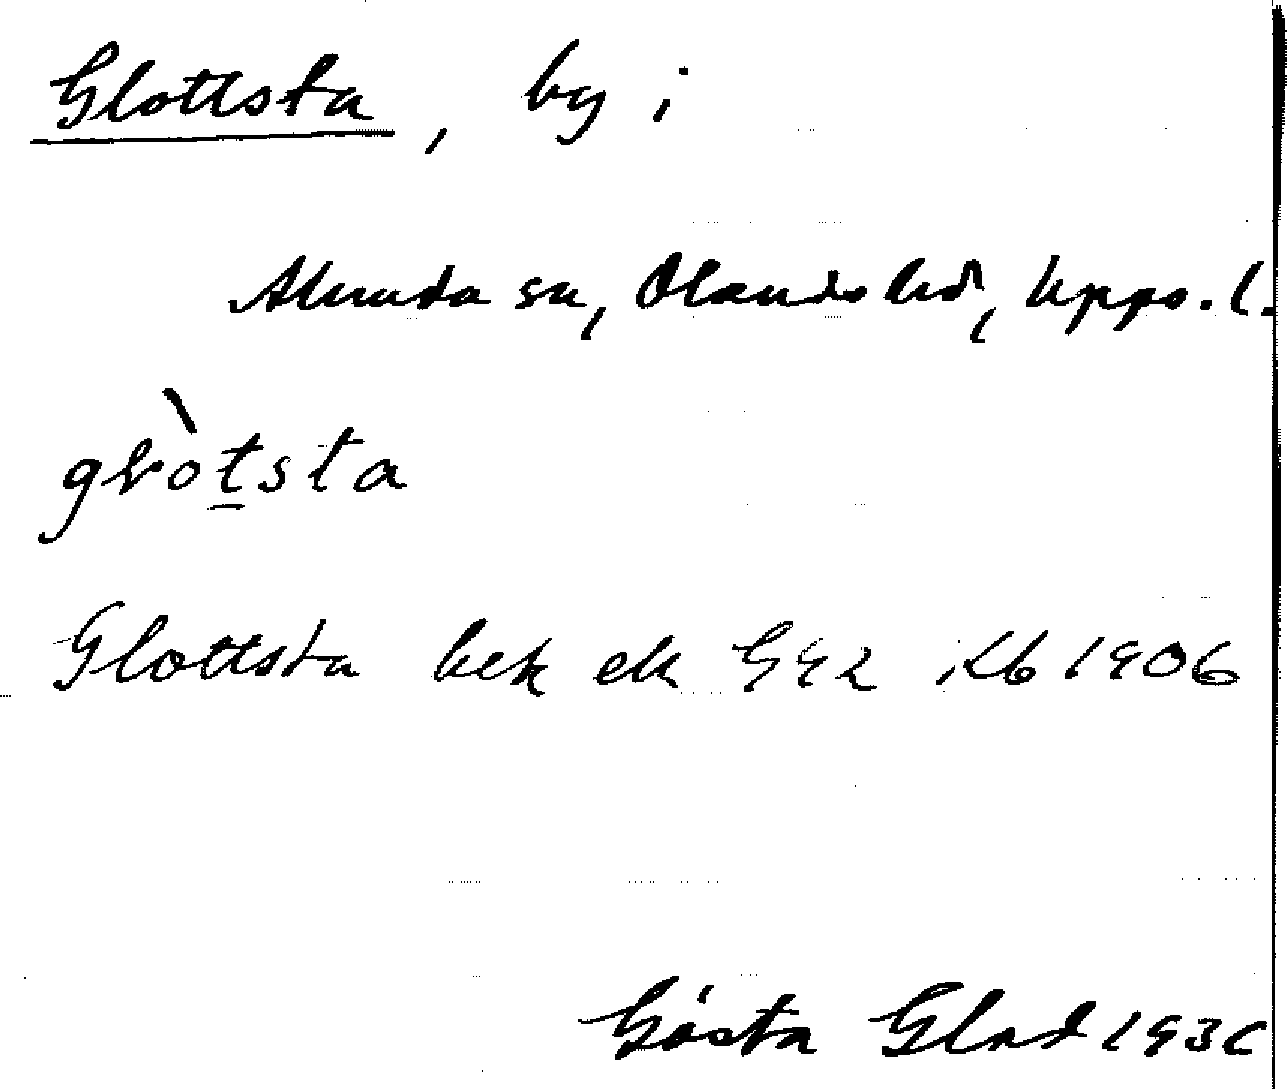 Glottsta, by i
Alunda sn, Olands hd, Upps. l.
glòtsta
Glottsta bek ek G92 Jb 1906
Gösta Glad 193